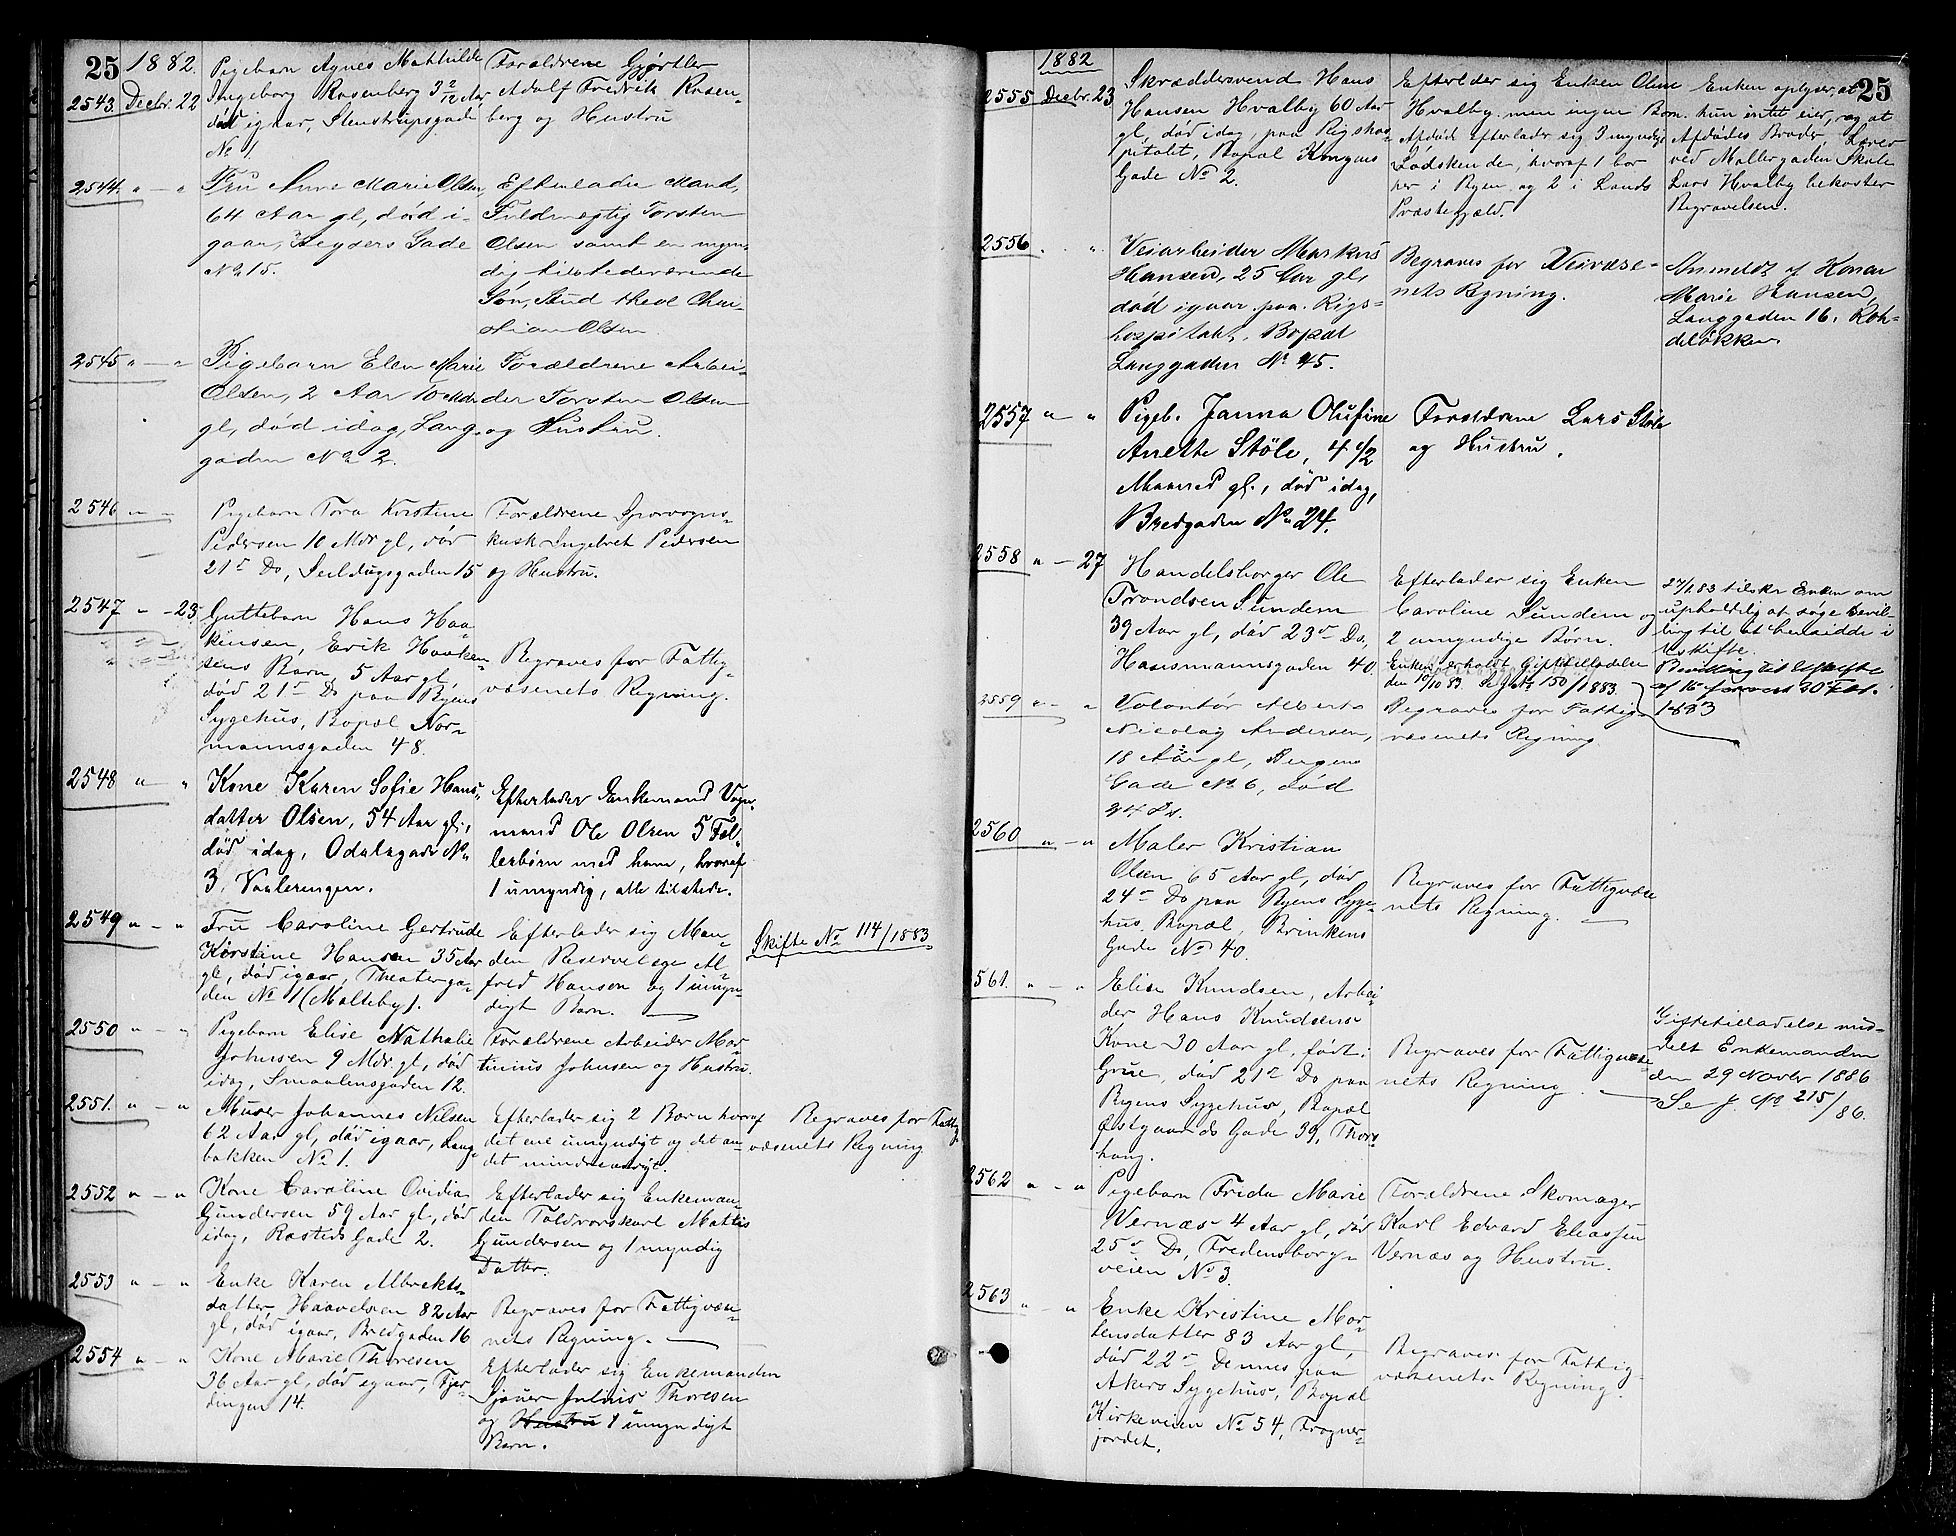 25
1882.
2543. Decbr. 22
Pigebarn Agnes Mathilde
Ingeborg Rosenberg 3 2/12 Aar
død igaar, Stenstrupsgade
No 1.
Forældrene Gjørtler
Adolf Fredrik Rosen-
berg og Hustru
2544. " — "
Fru Anne Marie Olsen,
64 Aar gl, død i-
gaar, Keysers Gade
No 15.
Efterlader Mand,
Fuldmægtig Torsten
Olsen samt en myn-
dig tilstedeværende
Søn, Stud
Olsen
2545 " — "
Pigebarn Elen Marie
Olsen, 2 Aar 10 Mdr
gl, død idag, Lang-
gaden No 2.
Forældrene Arbei-
der Torsten Olsen
og Hustru.
2546 " — "
Pigebarn Tora Kristine
Pedersen 10 Mdr gl, død
21de Ds, Seildugsgaden 15
Forældrene Sporvogns-
kusk Ingebret Pedersen
og Hustru.
2547 " - 23
Guttebarn Hans Haa-
kensen, Erik Haaken-
sens Barn, 5 Aar gl,
død 21de Ds paa Byens
Sygehus, Bopæl Nor-
mannsgaden 48.
Begraves for Fattig-
væsenets Regning.
2548 " "
Kone Karen Sofie Hans-
datter Olsen, 54 Aar gl.,
død idag, Odalsgade No
3, Vaalerengen.
Efterlader Enkemand Vogn-
mand Ole Olsen 5 Fæl-
lesbørn med ham, hvoraf
1 umyndig, alle tilstede.
2549 " — "
Fru Caroline Gertrude
Kirstine Hansen 35 Aar
gl, død igaar, Theaterga-
den No 1 (Malteby).
Efterlader sig Man-
den Reservelæge Al-
fred Hanson og 1 umyn-
digt Barn.
Skifte No 114/1883
2550 " — "
Pigebarn Elise Nathalie
Johnsen 9 Mdr gl, død
idag, Smaalensgaden 12.
Forældrene Arbeider Mar-
tinius Johnsen og Hustru.
2551. " — "
Murer Johannes Nilsen
62 Aar gl, død igaar, Lang-
bakken No 1.
Efterlader sig 2 Børn hvoraf
det ene umyndigt og det an-
det mindreaarigt.
Begraves for Fattig-
væsenets Regning
2552 " — "
Kone Caroline Ovidia
Gundersen 59 Aar gl, død
idag, Rosteds Gade 2.
Efterlader sig Enkeman-
den Toldvorskarl Mattis
Gundersen og 1 myndig
Datter.
2553 " — "
Enke Karen Albrekts-
datter Haavelsen 82 Aar
gl, død igaar, Bredgaden 16
Begraves for Fattigvæse-
nets Regning.
2554 " — "
Kone Marie Thoresen
36 Aar gl, død igaar, Fjer-
dingen 14.
Efterlader sig Enkemanden
Sjouer Julius Thoresen
og Hustru 1 umyndigt
Barn.
25
1882
2555 Decbr. 23
Skræddersvend Hans
Hansen Hvalby 60 Aar
gl, død idag, paa Rigshos-
pitalet, Bopæl Kongens
Gade No 2.
Efterlder sig Enken Oline
Hvalby men ingen Børn.
Afdød efterlader sig 3 myndige
Lødskende, hvoraf 1 bor
per i Byen og 2 i Lands
Præstegjæld.
Enken oplyser, at
hun intet eier, og at
Afdødes Broder, Lærer
ved Møllergadens Skole
Lars Hvalby bekoster
Begravelsen.
2556 " "
Veiarbeider Markus
Hansen, 25 Aar gl,
død igaar paa Rigs-
hospitalet, Bopæl
Langgaden No 45.
Begraves for Veivæse-
nets Regning.
Anmeldt af Konen
Marie Hansen,
Langgaden 16, Rod-
deløkken
2557 " — "
Pigeb. Janna Olufine
Anette Støle, 4 1/2
Maaned gl., død idag,
Bredgaden No 24.
Forældrene Lars Støle
og Hustru.
2558 " — 27
Handelsborger Ole
Trondsen Sundem
39 Aar gl, død 23de Ds,
Hausmannsgaden 40
Efterlader sig Enken
Caroline Sundem og
2 umyndige Børn.
Enken erholdt Giftetilladelse
den 10/10 83. Se J. No 150/1883.
27/1.83 tilskr Enken om
upholdelig at søge Bevil-
ling til at hensidde i
Uskifte.
Bevilling til Uskifte
af 15 Febr.
1883
2559 " — "
Volontør Alberts
Nicolay Andersen,
18 Aar gl, Bergens
Gade No 6, død
24 Ds.
Begraves for Fattig-
væsenets Regning.
2560 " — "
Maler Kristian
Olsen 65 Aar gl, død
24de Ds paa Byens Syge-
hus. Bopæl, Brinkens
Gade No 40.
Begraves for Fattigvæse
nets Regning.
561. " — "
Elise Knudsen, Arbei-
der Hans Knudsens
Kone 30 Aar gl, født i
Grue, død 21de Ds paa
Byens Sygehus, Bopæl
Østgaards Gade 39, Thors-
haug.
Begraves for Fattigvæse-
nets Regning.
Giftetilladelse med-
delt Enkemanden
den 29 Novbr 1886
Se J. No 215/86.
2562 " — "
Pigebarn Frida Marie
Vernæs 4 Aar gl, død
25de Ds, Fredensborg-
veien No 3.
Forældrene Skomager
Karl Edvard Eliassen
Vernæs og Hustru.
2563 " — "
Enke Kristine Mor-
tensdatter 83 Aar gl,
død 22de Dennes paa
Akers Sygehus, Bopæl
Kirkeveien No 54, Frogner-
jordet.
Begraves for Fattig-
væsenets Regning.